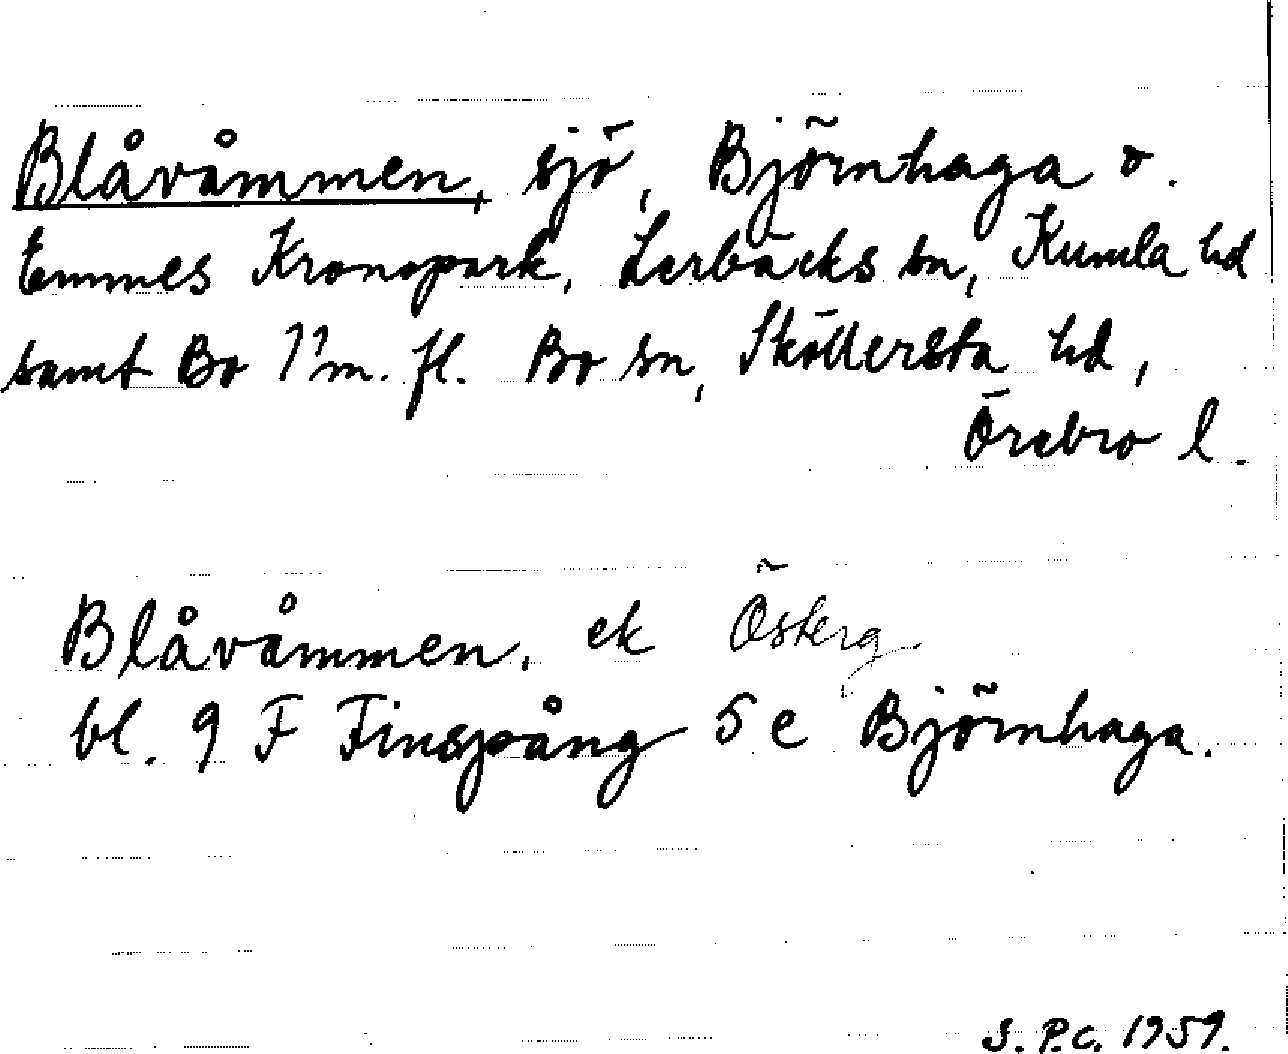 Blåvåmmen, sjö, Björnhaga o.
Emmes Kronopark, Lerbäcks sn, Kumla hd
samt Bo 1¹ m. fl. Bo sn, Sköllersta hd,
Örebro l.
Blåvåmmen, ek Österg
bl. 9 F Finspång 5 e Björnhaga.
S. P.C. 1959.